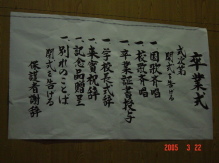 卒業式
式次第
一、開式を告げる
一、国歌斉唱
一、校歌斉唱
一、卒業証書授与
一、学校長式辞
一、来賓祝辞
一、記念品贈呈
一、別れのことば
一、閉式を告げる
保護者謝辞
2005 3 22